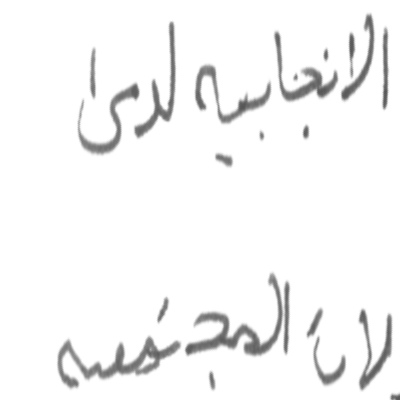 الانجابيه لدى ا
لات المجتمعيه